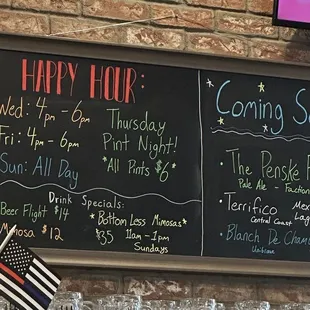 HAPPY HOUR:
Wed: 4pm - 6pm
Fri: 4pm - 6pm
Sun: All Day
Thursday
Pint Night!
*All Pints $6*
Drink Specials:
Beer Flight $14
Mimosa $12
*Bottom Less Mimosas*
$35 11am - 1pm
Sundays
Coming
• The Penske
Pale Ale -
• Terrifico
Central Coast
Lager
• Blanch De